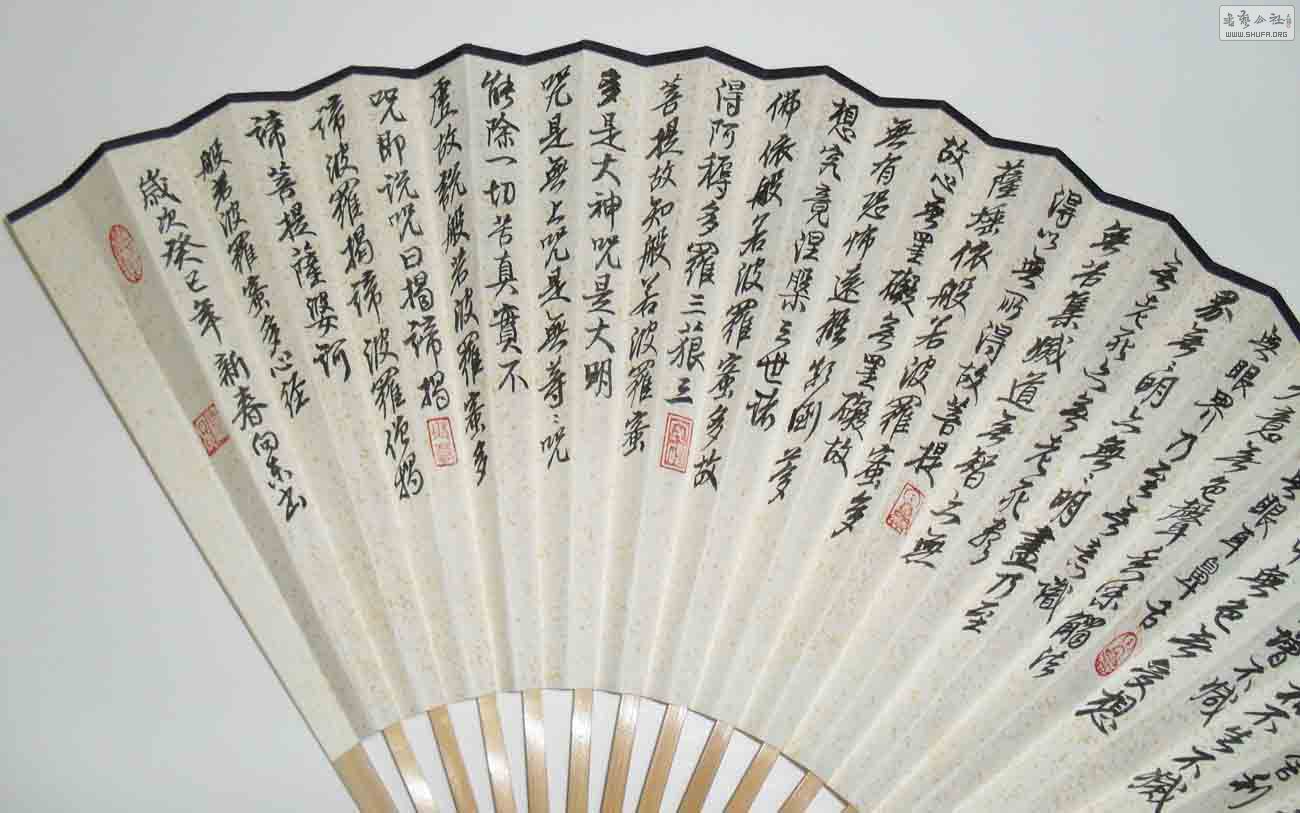 不減
增
不生不滅
無色無受想
無眼耳鼻舌
意無色聲香味觸法
無眼界乃至無意識
界無〻明亦無〻明盡乃至
無老死亦無老死盡
無苦集滅道無智亦無
得以無所得故菩提
薩埵依般若波羅蜜多
故心無罣礙無罣礙故
無有恐怖遠離顛倒夢
想究竟涅槃三世诸
佛依般若波羅蜜多故
得阿耨多羅三藐三
菩提故知般若波羅蜜
多是大神咒是大明
咒是無上咒是無等〻咒
能除一切苦真實不
虚故說般若波羅蜜多
咒即说咒曰揭諦揭
諦波羅揭諦波羅僧揭
諦菩提薩婆訶
般若波羅蜜多心经
歲次癸巳年新春向东书
WWW.SHUFA.ORG